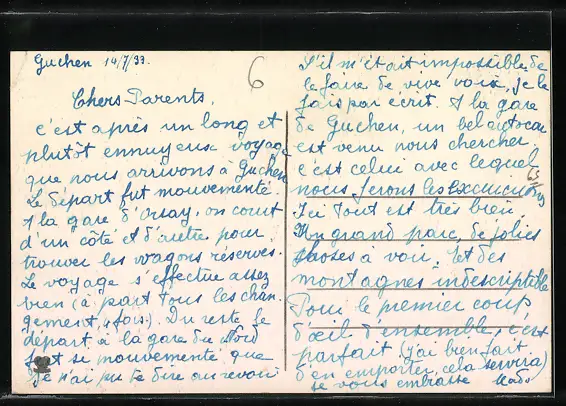 Guchen 14/7/33.
6
Chers Parents,
c'est après un long et
plutôt ennuyeux voyage
que nous arrivons à Guchen
Le départ fut mouvementé.
A la gare d'Orsay, on court
d'un côté et d'autre pour
trouver les wagons réservés.
Le voyage s'effectue assez
bien (à part tous les chan-
gement, 4 fois). Du reste le
départ à la gare du Nord
fut si mouvementé que
je n'ai pu te dire au revoir
S'il m'était impossible de
le faire de vive voix, je le
fais par écrit. A la gare
de Guchen, un bel autocar
est venu nous chercher,
c'est celui avec lequel
nous ferons les Excursions
63
Ici tout est très bien.
Un grand parc, de jolies
choses à voir, et des
montagnes indescriptible
Pour le premier coup
d'œil d'ensemble, c'est
parfait (j'ai bien fait
d'en emporter, cela servira)
je vous embrasse